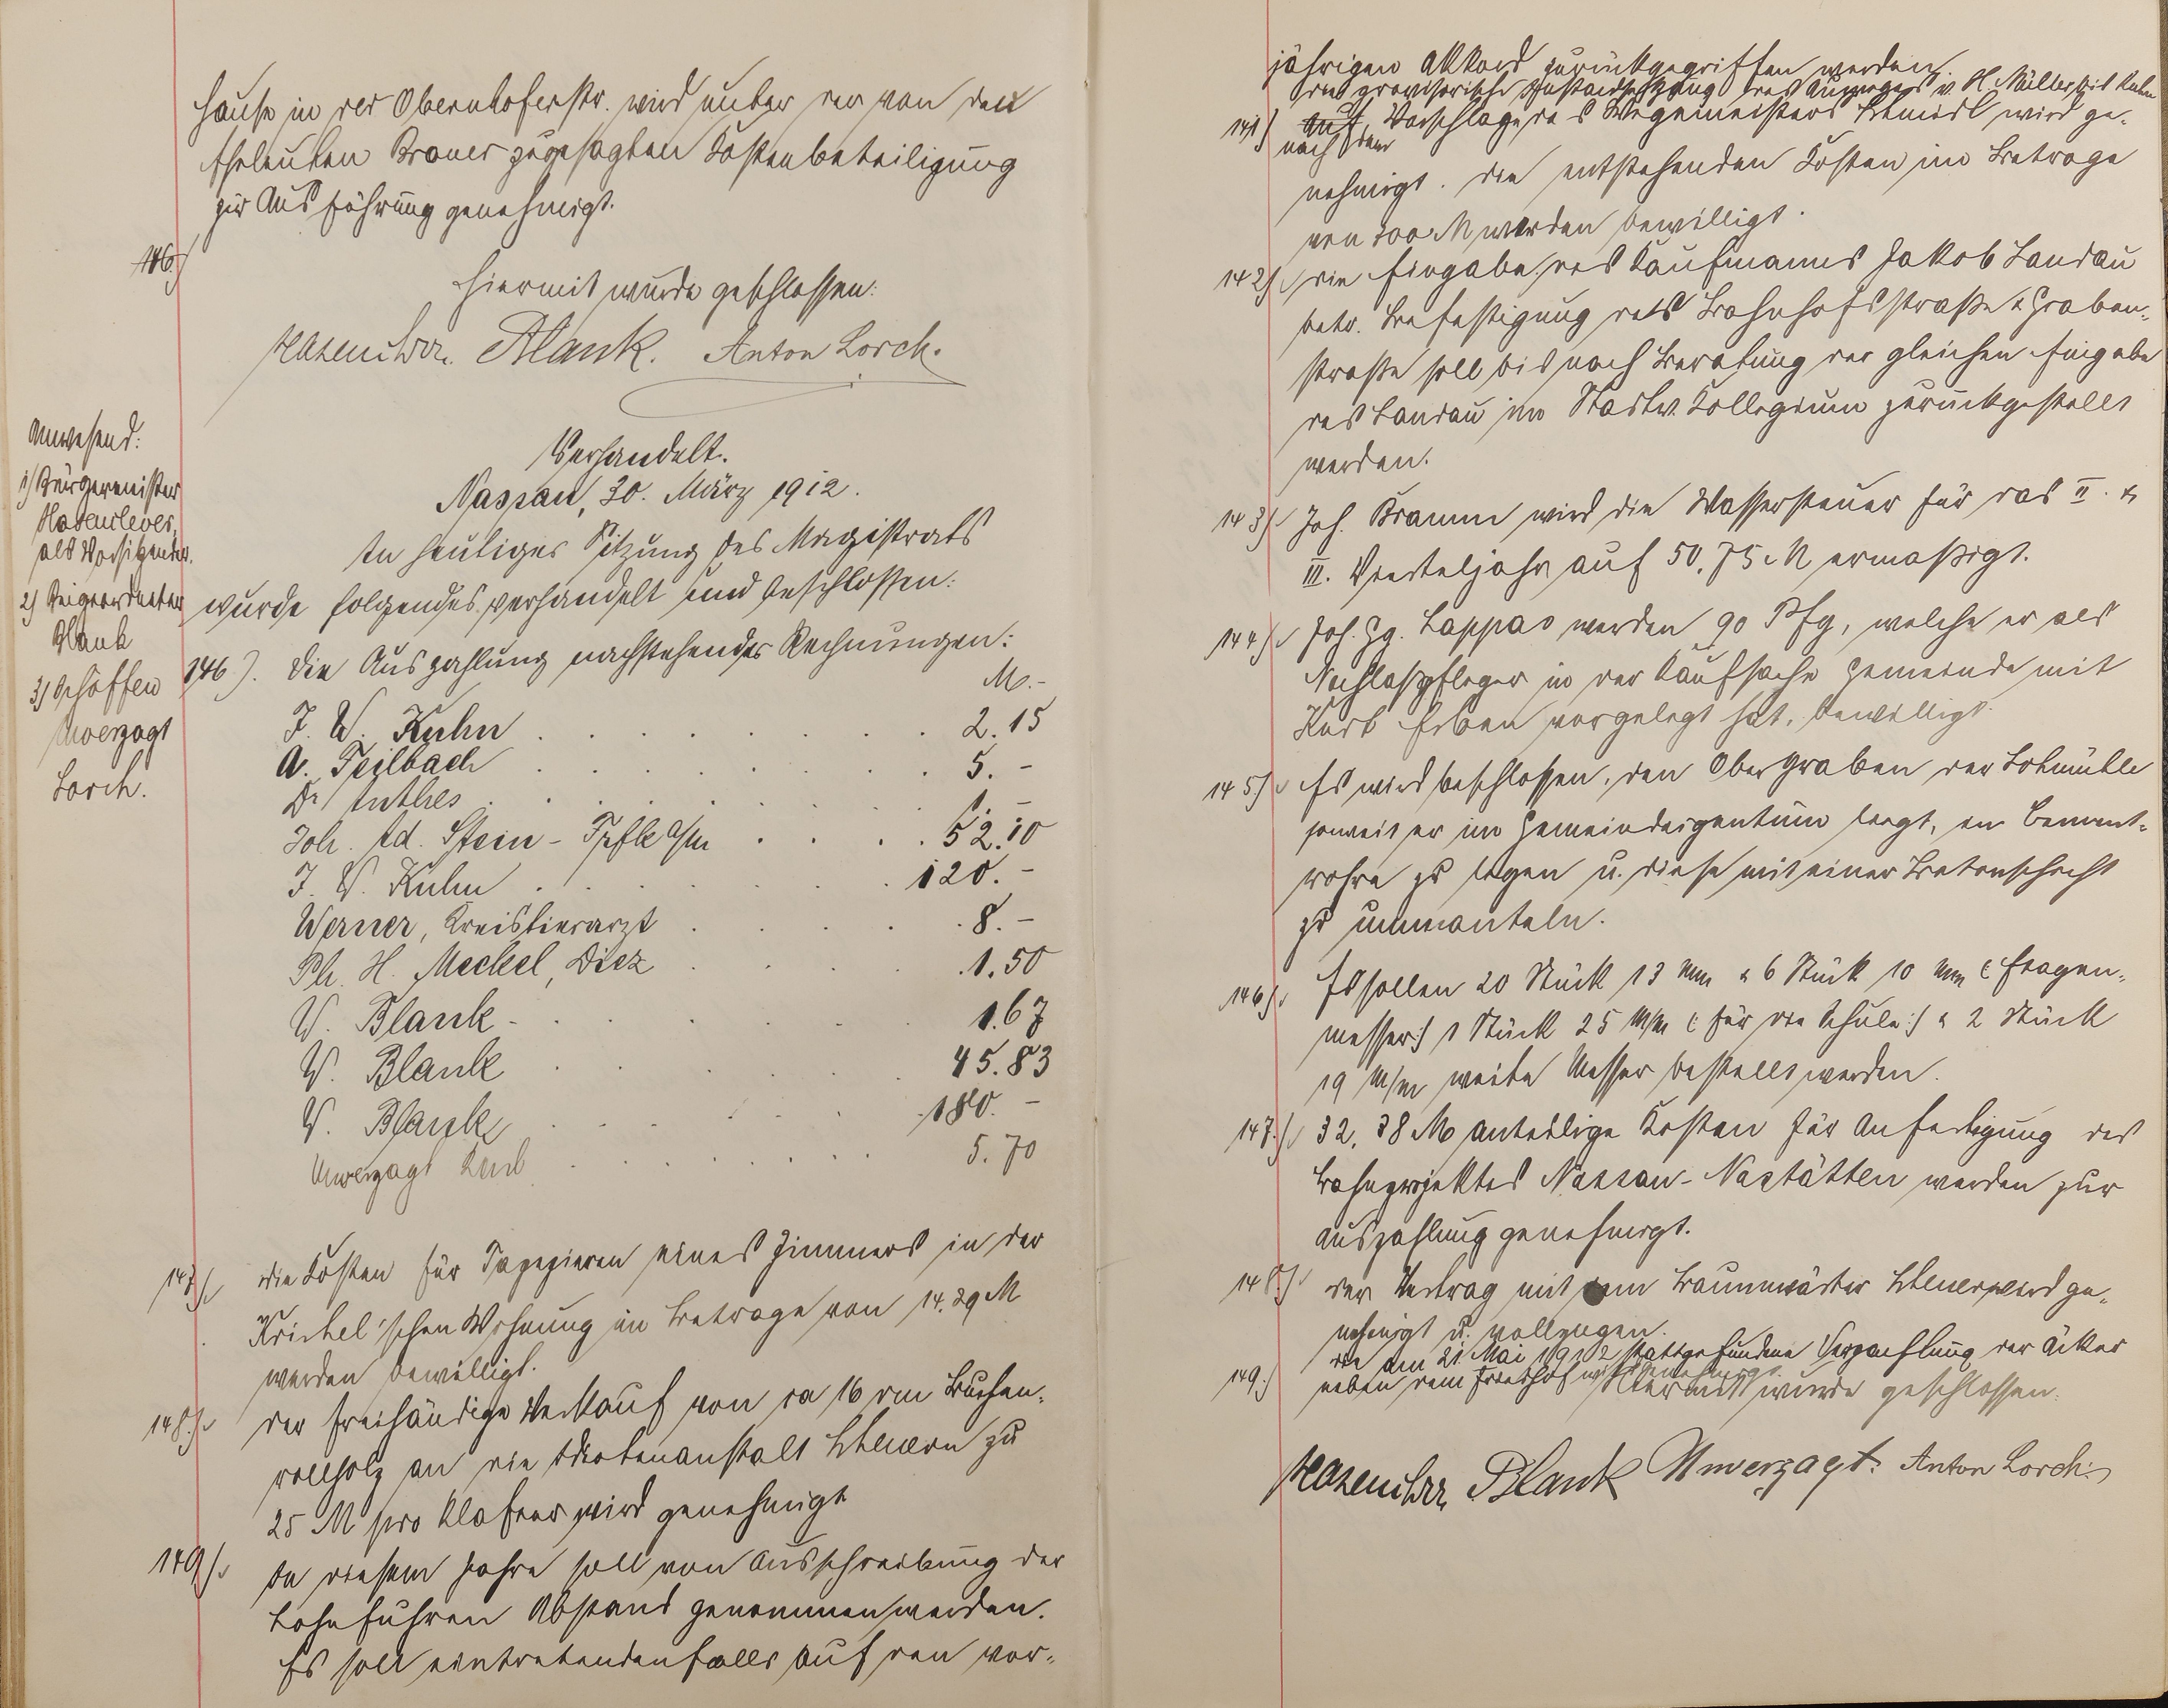 Hause in der Obernhoferstr. wird unter der von den
Eheleuten Braner zugesagten Kostenbeteiligung
zur Ausführung genehmigt.
146.)
Hiermit wurde geschlossen:
Hasenclever. Blank. Anton Lorch.
Anwesend:
1) Bürgermeister
Hasenclever,
als Vorsitzender.
2) Beigeordneter
Blank
3) Schöffen
Unverzagt
Lorch.
Verhandelt.
Nassau, 30. März 1912.
In heutiger Sitzung des Magistrats
wurde folgendes verhandelt und beschlossen:
146). Die Auszahlung nachstehender Rechnungen:
M.-
J. W. Kuhn . . . . . . . . 2.15
A. Teilbach . . . . . . . 5.-
Dr Anthes . . . . . . . 1.-
Joh. Ed. Stein - a/m . . . . 52.10
J. W. Kuhn . . . . . . . 120.-
Werner, Kreistierarzt . . . . . 8.-
Ph. H. Meckel, Diez . . . . . 1.50
W. Blank . . . . . . . 1.67
W. Blank . . . . . . . 45.83
W. Blank . . . . . . . 180.-
Unverzagt Karl . . . . . . . 5.70
147.) Die Kosten für Tapezieren eines Zimmers in der
Krichel'schen Wohnung im Betrage von 14.29 M
werden bewilligt.
148.) Der freihändige Verkauf von ca 16 rm Buchen-
rollholz an die Idiotenanstalt Scheuern zu
25 M pro Klafter wird genehmigt
149.) In diesem Jahre soll von Ausschreibung der
Lohnfuhren Abstand genommen werden.
Es soll eintretendenfalls auf den vor-
jährigen Akkord zurückgegriffen werden.
Die provisorische Instandsetzung des v. H. Müller bis
141) Auf Vorschlage des Wegemeisters Schmidt wird ge-
nach dem
nehmigt. Die entstehenden Kosten im Betrage
von 200 M werden bewilligt.
142) Die Eingabe des Kaufmanns Jakob Landau
betr. Befestigung der Bahnhofsstraße & Graben-
straße soll bis nach Beratung der gleichen Eingabe
des Landau im Stadtv. Kollegium zurückgestellt
werden.
143) Joh. Bramm wird die Wassersteuer für das II. &
III. Vierteljahr auf 50,75 M ermäßigt.
144) Joh. Gg. Lappas werden 90 Pfg, welche er als
Nachlaßpfleger in der Kaufsache Gemeinde mit
Kurt Erben vorgelegt hat, bewilligt.
145) Es wird beschlossen, den Obergraben der Lohmühle
soweit er im Gemeindeigentum liegt, in Cement-
rohre zu legen u. diese mit einer Betonschicht
zu ummanteln.
146) Es sollen 20 Stück 13 mm & 6 Stück 10 mm (: Etagen-
messer:) 1 Stück 25 m/m (: für die Schule:) & 2 Stück
19 m/m weite Messer bestellt werden.
147.) 32,38 M anteilige Kosten für Anfertigung des
Bahnprojektes Nassau - Nastätten werden zur
Auszahlung genehmigt.
148.) Der Vertrag mit dem Baumwärter wird ge-
nehmigt u. vollzogen.
149.) Die am 21. Mai 1912 stattgefundene Verpachtung der Äcker
neben dem Friedhof wird genehmigt.
Hiermit wurde geschlossen.
Hasenclever Blank Unverzagt. Anton Lorch.